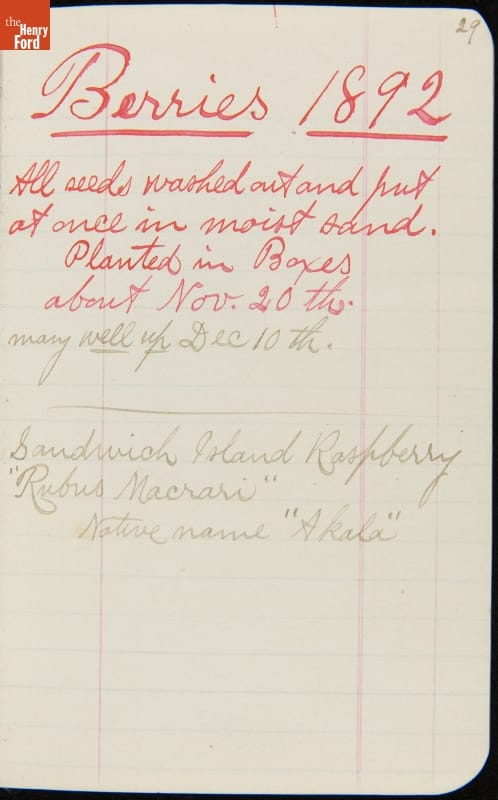 the
Henry
Ford
29
Berries 1892
All seeds washed out and put
at once in moist sand.
Planted in Boxes
about Nov. 20 th.
many well up Dec 10 th.
Sandwich Island Raspberry
"Rubus Macrari"
Native name "Akala"